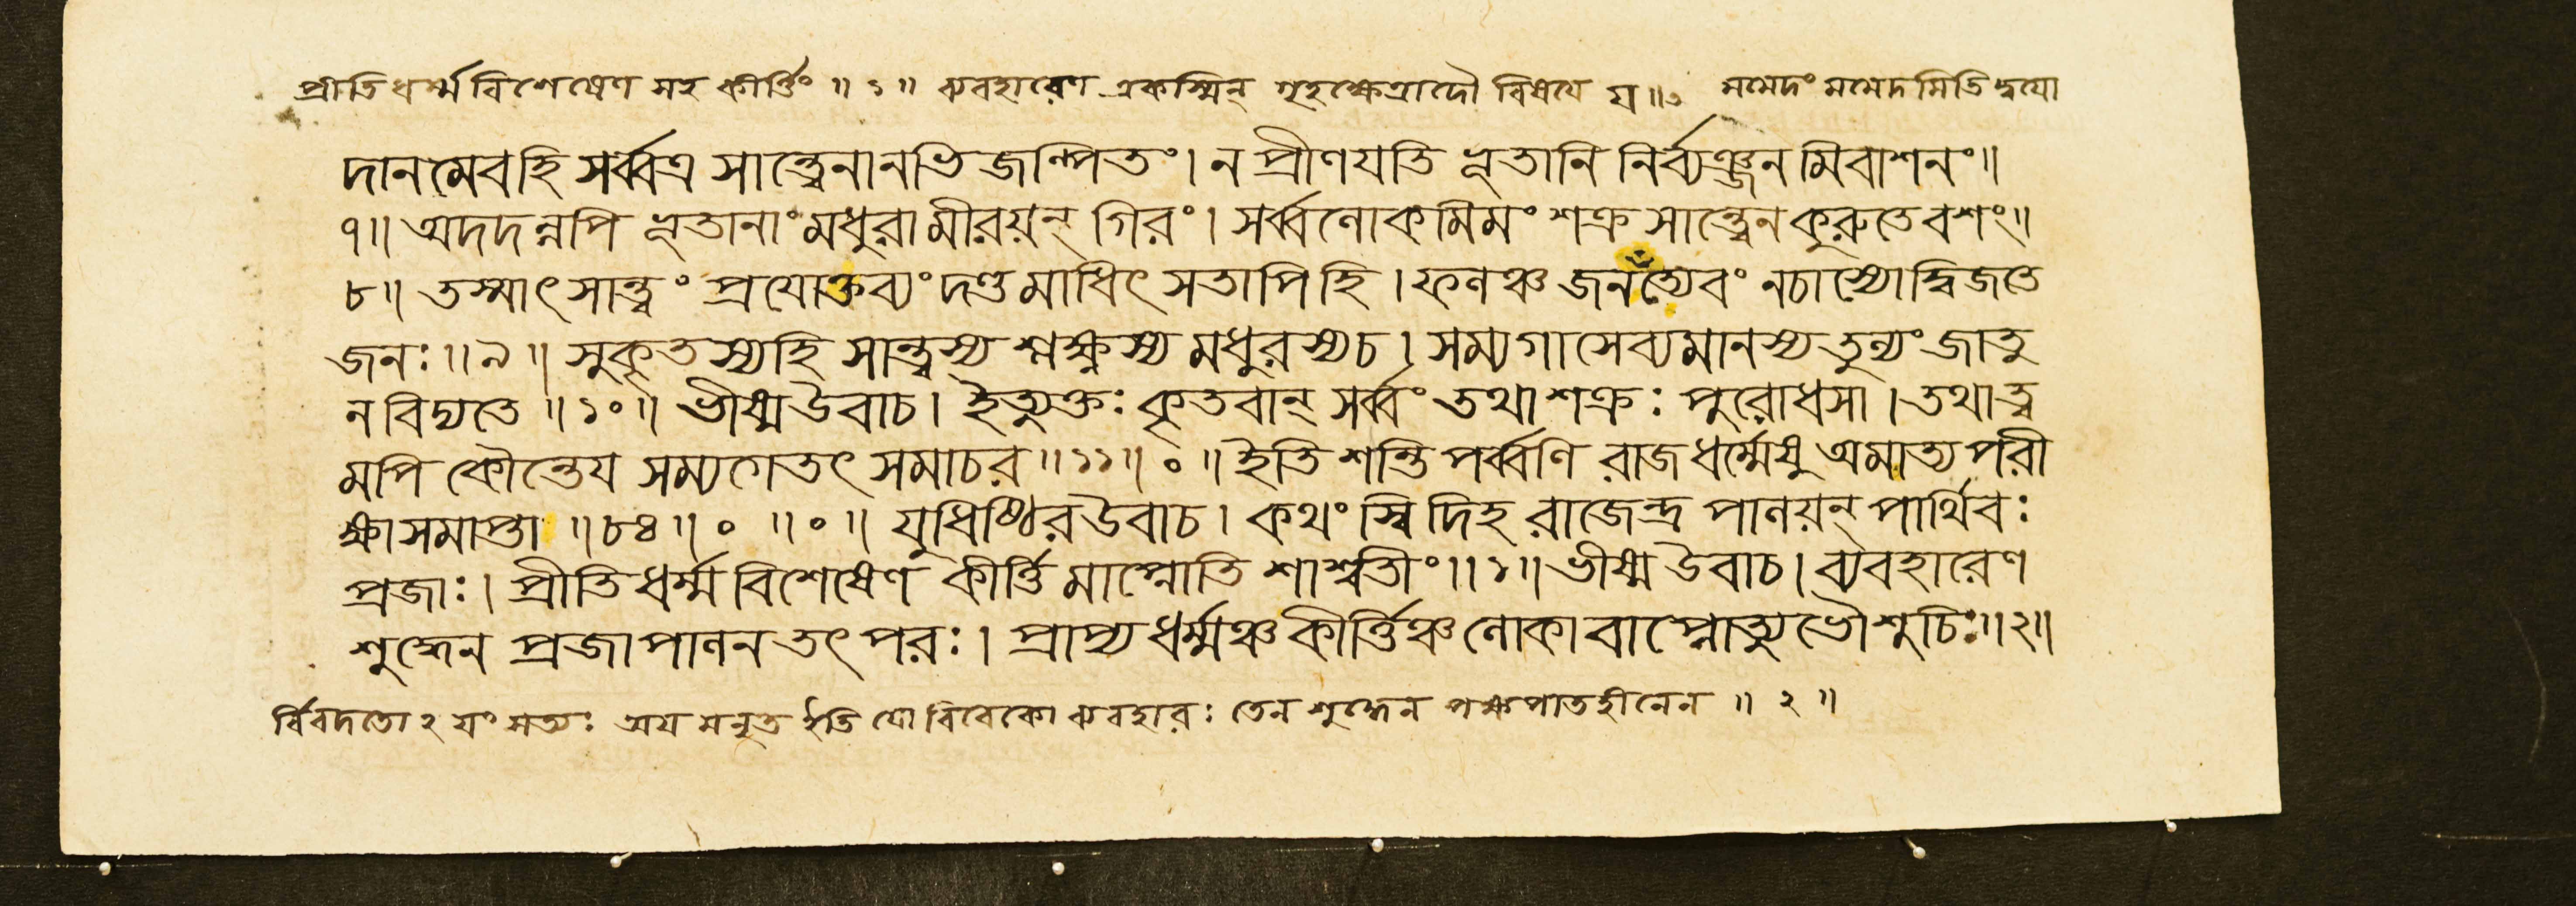 প্রীতিধর্ম্মবিশেষেণ সহ কীর্ত্তিং ॥ ১ ॥ ব্যবহারেণ একস্মিন্ গৃহক্ষেত্রাদৌ বিষয়ে ঘ ॥৩ মমেদং মমেদমিতি দ্বয়ো
দানমেবহি সর্ব্বত্র সান্ত্বেনানভিজল্পিতং। ন প্রীণযতি ভূতানি নির্ব্যঞ্জনমিবাশনং॥
৭॥ অদদন্নপি ভূতানাং মধুরামীরয়ন্ গিরং। সর্ব্বলোকমিমং শক্র সান্ত্বেন কুরুতে বশং॥
৮॥ তস্মাৎ সান্ত্বং প্রযোক্তব্যং দণ্ডমাধিৎসতাপিহি। ফলঞ্চ জনঁত্যেবং নচাস্যোদ্বিজতে
জনঃ॥ ৯ ॥ সুকৃতস্যহি সান্ত্বস্য শ্লক্ষ্ণস্য মধুরস্যচ। সম্যগাসেব্যমানস্য তুল্যং জাতু
ন বিদ্যতে ॥ ১০ ॥ ভীষ্মউবাচ। ইত্যুক্তঃ কৃতবান্ সর্ব্বং তথা শক্রঃ পুরোধসা। তথা ত্ব
মপি কৌন্তেয সম্যগেতৎ সমাচর ॥১১॥ ০ ॥ ইতি শন্তিপর্ব্বণি রাজধর্ম্মেষু অমাত্যপরী
ক্ষাসমাপ্তা ॥৮৪॥ ০ ॥ ০ ॥ যুধিষ্ঠিরউবাচ। কথং স্বিদিহ রাজেন্দ্র পালয়ন্ পার্থিবঃ
প্রজাঃ। প্রীতিধর্ম্মবিশেষেণ কীর্ত্তিমাপ্নোতি শাশ্বতীং॥১॥ ভীষ্মউবাচ। ব্যবহারেণ
শুদ্ধেন প্রজাপালনতৎপরঃ। প্রাপ্য ধর্ম্মঞ্চ কীর্ত্তিঞ্চ লোকাবাপ্নোত্যুভৌ শুচিঃ॥২॥
র্বিবদতোঽযং সত্যঃ অযমনৃত ইতি যো বিবেকো ব্যবহারঃ তেন শুদ্ধেন পক্ষপাতহীনেন ॥ ২ ॥